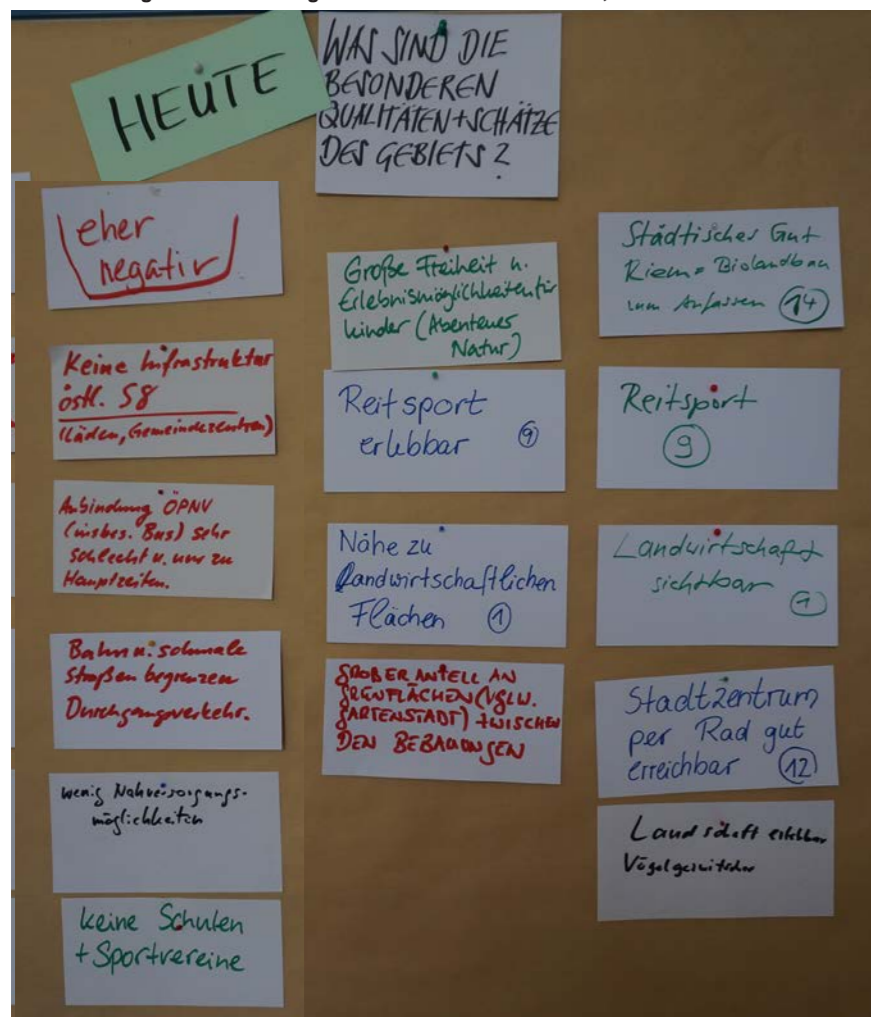 HEUTE
WAS SIND DIE
BESONDEREN
QUALITÄTEN+SCHÄTZE
DES GEBIETS?
eher
negativ
Keine Infrastruktur
östl. S8
(Läden, Gemeindezentren)
Anbindung ÖPNV
(insbes. Bus) sehr
schlecht u. nur zu
Hauptzeiten.
Bahn u. schmale
Straßen begrenzen
Durchgangsverkehr.
wenig Nahversorgungs-
möglichkeiten
keine Schulen
+ Sportvereine
Große Freiheit u.
Erlebnismöglichkeiten für
Kinder (Abenteuer
Natur)
Reitsport
erlebbar 9
Nähe zu
Landwirtschaftlichen
Flächen 1
GROßER ANTEIL AN
GRÜNFLÄCHEN (VGLW.
GARTENSTADT) ZWISCHEN
DEN BEBAUUNGEN
Städtisches Gut
Riem = Biolandbau
zum Anfassen 14
Reitsport
9
Landwirtschaft
sichtbar
1
Stadtzentrum
per Rad gut
erreichbar 12
Landschaft erlebbar
Vogelgezwitscher